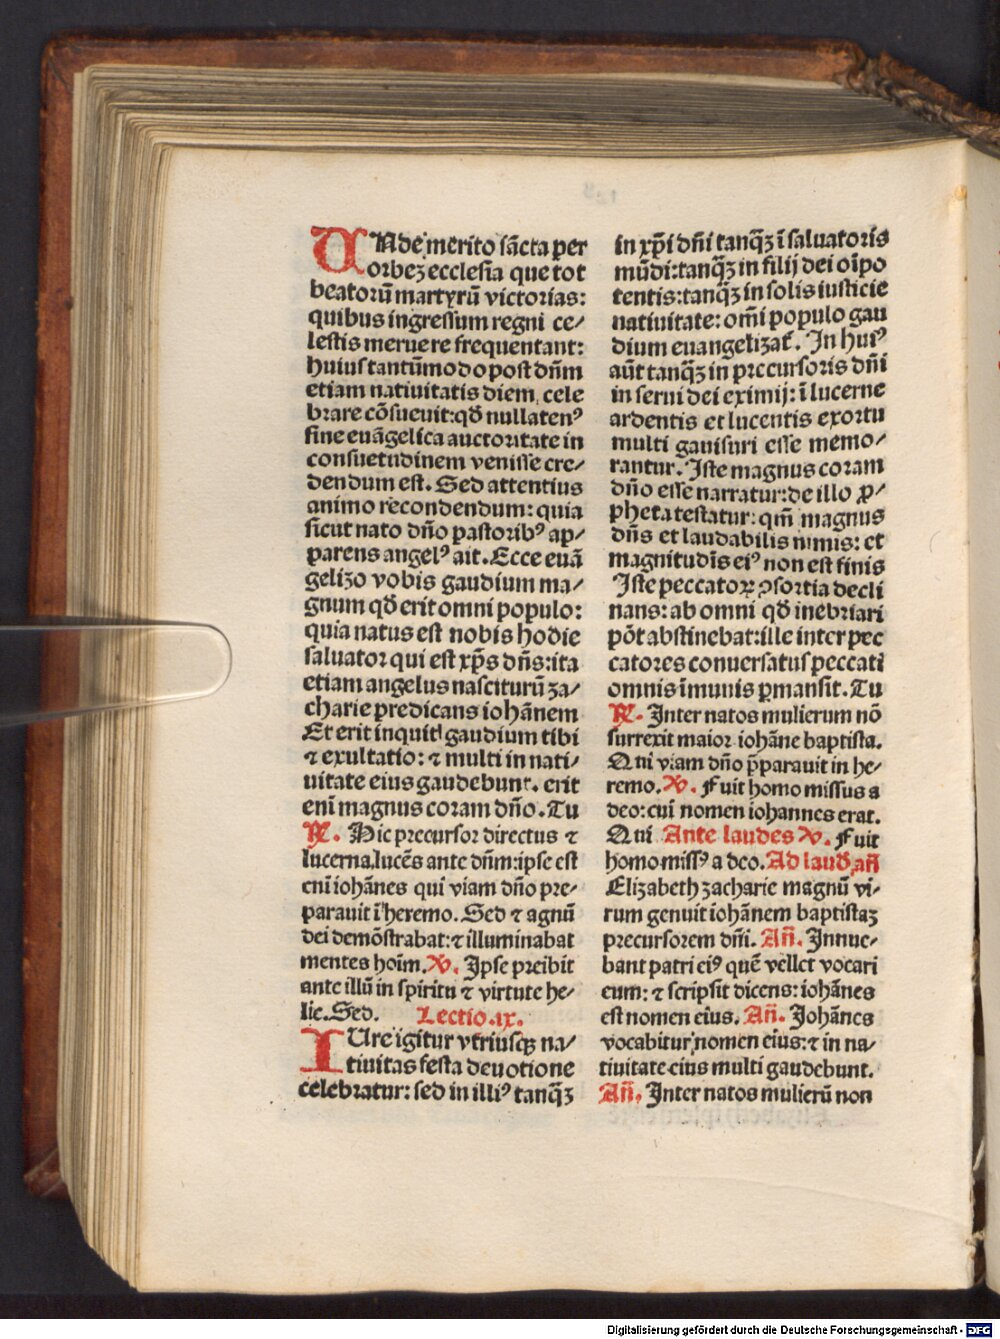 UNde merito sācta per
orbeȝ ecclesia que tot
beatorū martyrū victorias:
quibus ingressum regni ce/
lestis meruere frequentant:
huius tantūmodo post dn̄m
etiam natiuitatis diem cele
brare cōsueuit: qđ nullatenꝰ
sine euāgelica auctoritate in
consuetudinem venisse cre/
dendum est. Sed attentius
animo recondendum: quia
sicut nato dn̄o pastoribꝰ ap/
parens angelꝰ ait. Ecce euā
gelizo vobis gaudium ma/
gnum qđ erit omni populo:
quia natus est nobis hodie
saluator qui est xp̄s dn̄s: ita
etiam angelus nasciturū za/
charie predicans iohānem
Et erit inquit gaudium tibi
⁊ exultatio: ⁊ multi in nati/
uitate eius gaudebunt. erit
enī magnus coram dn̄o. Tu
℟. Hic precursor directus ⁊
lucerna lucēs ante dn̄m: ipse est
enī iohānes qui viam dn̄o pre/
parauit ī heremo. Sed ⁊ agnū
dei demōstrabat: ⁊ illuminabat
mentes hoīm. ℣. Ipse preibit
ante illū in spiritu ⁊ virtute he/
lie. Sed. Lectio .ix.
IUre igitur vtriusqȝ na/
tiuitas festa deuotione
celebratur: sed in illiꝰ tanq̄ȝ
in xp̄i dn̄i tanq̄ȝ ī saluatoris
mūdi: tanq̄ȝ in filij dei oīpo
tentis: tanq̄ȝ in solis iusticie
natiuitate: om̄i populo gau
dium euangelizat̄. In huiꝰ
aūt tanq̄ȝ in precursoris dn̄i
in serui dei eximij: ī lucerne
ardentis et lucentis exortu
multi gauisuri esse memo/
rantur. Iste magnus coram
dn̄o esse narratur: de illo ꝓ/
pheta testatur: qm̄ magnus
dn̄s et laudabilis nimis: et
magnitudīs eiꝰ non est finis
Iste peccatoꝝ ꝯsortia decli
nans: ab omni qđ inebriari
pōt abstinebat: ille inter pec
catores conuersatus peccati
omnis īmunis ꝑmansit. Tu
℟. Inter natos mulierum nō
surrexit maior iohāne baptista.
Qui viam dn̄o p̄parauit in he/
remo. ℣. Fuit homo missus a
deo: cui nomen iohannes erat.
Qui Ante laudes ℣. Fuit
homo missꝰ a deo. Ad laud̄ an̄
Elizabeth zacharie magnū vi/
rum genuit iohānem baptistaȝ
precursorem dn̄i. An̄. Innue/
bant patri eiꝰ quē vellet vocari
eum: ⁊ scripsit dicens: iohānes
est nomen eius. An̄. Iohānes
vocabitur nomen eius: ⁊ in na/
tiuitate eius multi gaudebunt.
An̄. Inter natos mulierū non
Digitalisierung gefördert durch die Deutsche Forschungsgemeinschaft - DFG